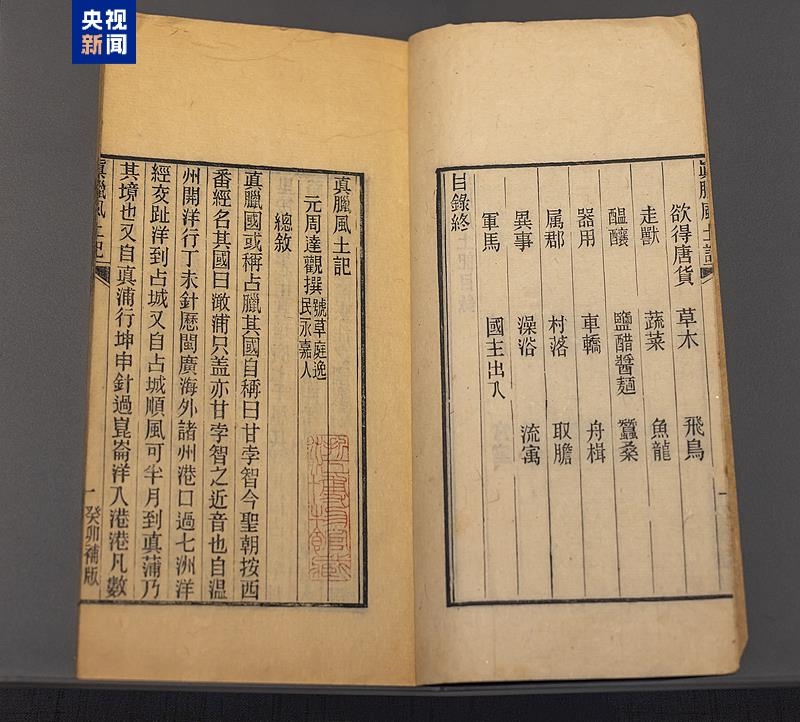 央视
新闻
真臘風土記
欲得唐貨 草木 飛鳥
走獸 蔬菜 魚龍
醖釀 鹽醋醬麵 蠶桑
器用 車轎 舟楫
属郡 村落 取膽
異事 澡浴 流寓
軍馬 國主出入
目錄終
真臘風土記
元周達觀撰 號草庭逸
民永嘉人
總敘
真臘國或稱占臘其國自稱曰甘孛智今聖朝按西
番經名其國曰澉浦只盖亦甘孛智之近音也自温
州開洋行丁未針歷閩廣海外諸州港口過七洲洋
經交趾洋到占城又自占城順風可半月到真蒲乃
其境也又自真蒲行坤申針過崑崙洋入港港凡數
真臘風土記
一
癸卯補版